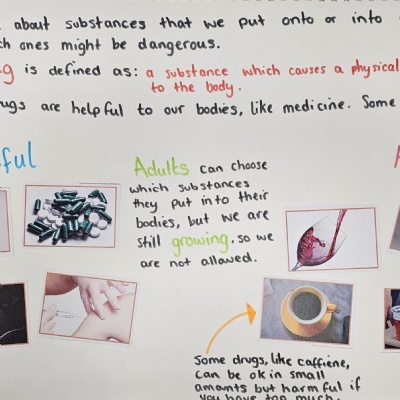 about substances that we put onto or into
ch ones might be dangerous.
g is defined as: a substance which causes a physical
to the body.
ugs are helpful to our bodies, like medicine. Some
ful
Adults can choose
which substances
they put into their
bodies, but we are
still growing, so we
are not allowed.
Some drugs, like caffiene,
can be ok in small
amonts but harmful if
you have too much.